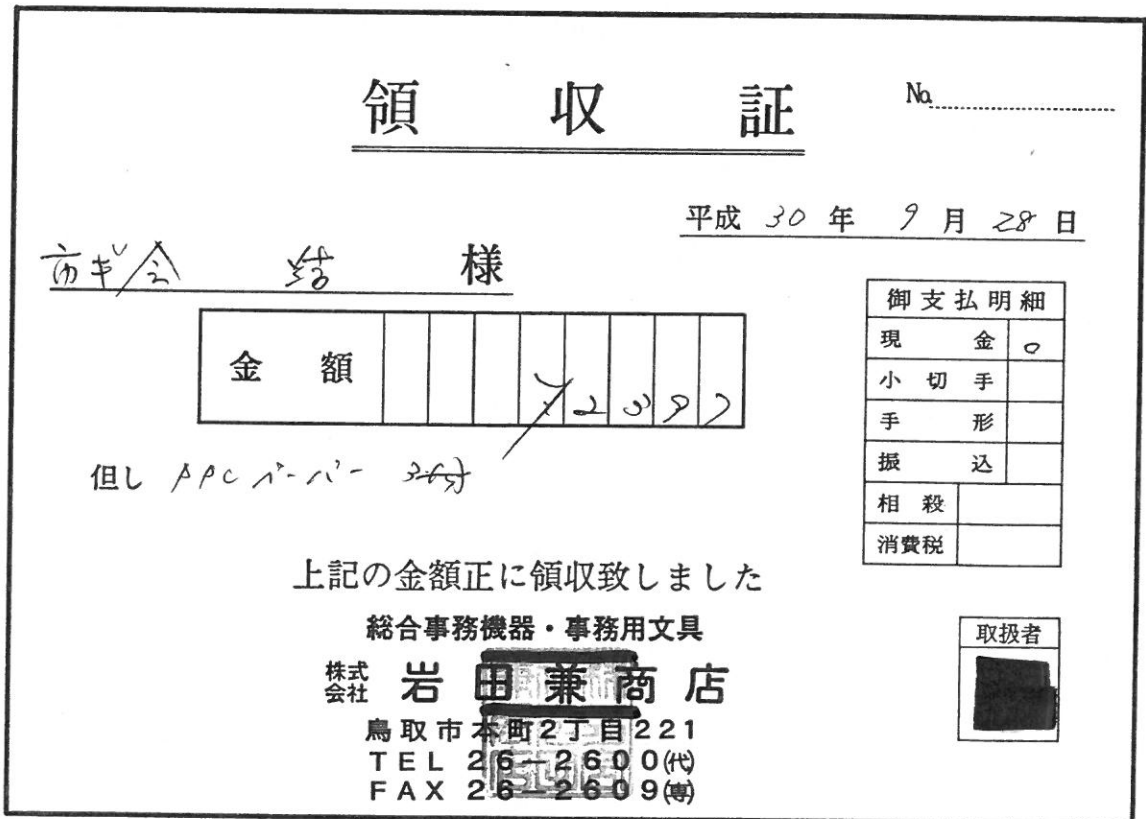 領収証
No.
平成 30 年 9 月 28 日
市ギ会 結 様
金額 ¥2397
但し PPCペーパー
御支払明細
現金 ○
小切手
手形
振込
相殺
消費税
上記の金額正に領収致しました
総合事務機器・事務用文具
株式会社 岩田兼商店
鳥取市本町2丁目221
TEL 26-2600(代)
FAX 26-2609(専)
取扱者